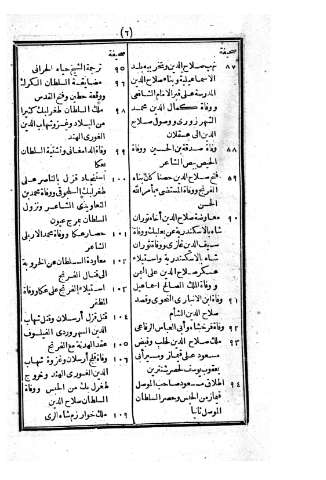 (٦)
صحيفة
٨٧ نهب صلاح الدين وتخريبه بلد
الاسماعيلية وبناء صلاح الدين
المدرسة على قبر الامام الشافعى
ووفاة كمال الدين محمد
الشهرزورى ووصول صلاح
الدين الى عسقلان
٨٨ وفاة صدقة بن الحسين ووفاة
الحيص بيص الشاعر
٨٩ فتح صلاح الدين حصنا كان بناه
الفرنج ووفاة المستضى بأمر الله
الحسن
٩٠ معاوضة صلاح الدين أخاه توران
شاه بالاسكندرية عن بعلبك ووفاة
سيف الدين غازى ووفاة توران
شاه بالاسكندرية واستيلاء
عسكر صلاح الدين على اليمن
ووفاة الملك الصالح اسماعيل
٩١ وفاة ابن الانبارى النحوى وقصد
صلاح الدين الشأم
٩٢ وفاة فرخشاه وأبى العباس الرفاعى
٩٣ ملك صلاح الدين حلب وقبض
مسعود على قيماز ومسير أبى
يعقوب يوسف لحصر شنترين
٩٤ اطلاق مسعود صاحب الموصل
قيماز من الحبس وحصر السلطان
الموصل ثانيا
صحيفة
٩٥ ترجمة الشيخ حياة الحرانى
٩٦ مضايقة السلطان الكرك
ووقعة حطين وفتح القدس
٩٨ ملك السلطان طغرلبك كثيرا
من البلاد وغزو شهاب الدين
الغورى الهند
٩٩ وفاة الدامغانى وتشتية السلطان
بعكا
١٠٠ استنجاد قزل بالناصر على
طغرلبك السلجوقى ووفاة محمد بن
التعاويذى الشاعر ونزول
السلطان بمرج عيون
١٠١ حصار عكا ووفاة محمد الاربلى
الشاعر
١٠٢ معاودة السلطان عن الخروبة
الى قتال الفرنج
١٠٣ استيلاء الفرنج على عكا ووفاة
المظفر
١٠٤ قتل قزل أرسلان وقتل شهاب
الدين السهروردى الفيلسوف
١٠٥ عقد الهدنة مع الفرنج
١٠٦ وفاة قلج أرسلان وغزوة شهاب
الدين الغورى الهند وخروج
طغرل بك من الحبس ووفاة
السلطان صلاح الدين
١٠٩ ملك خوارزم شاه الرى